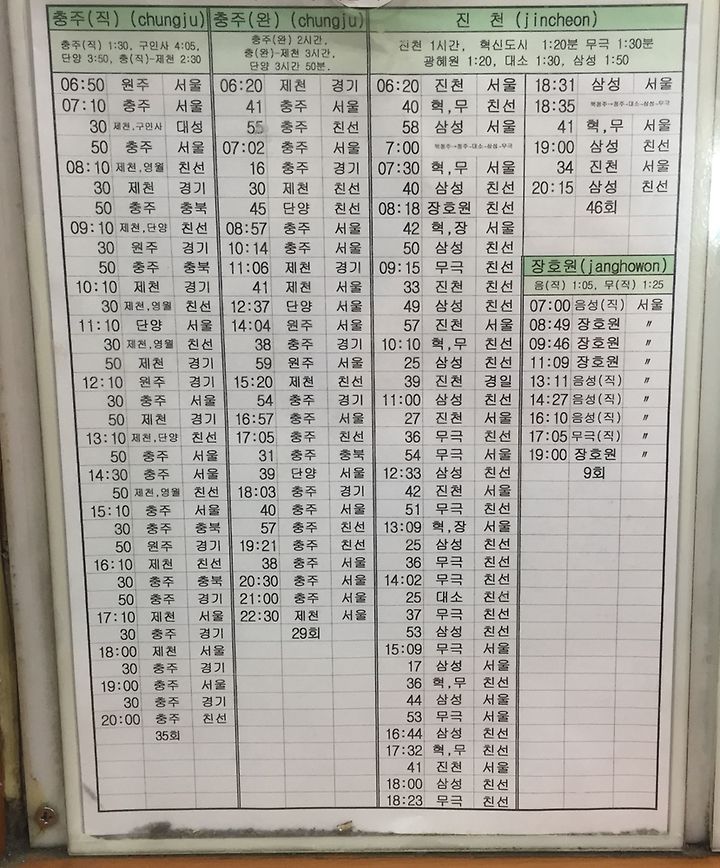 충주(직) (chungju)
충주(직) 1:30, 구인사 4:05,
단양 3:50, 충(직)-제천 2:30
06:50 원주 서울
07:10 충주 서울
30 제천,구인사 대성
50 충주 서울
08:10 제천,영월 친선
30 제천 경기
50 충주 충북
09:10 제천,단양 친선
30 원주 경기
50 충주 충북
10:10 제천 경기
30 제천,영월 친선
11:10 단양 서울
30 제천,영월 친선
50 제천 경기
12:10 원주 경기
30 충주 서울
50 제천 경기
13:10 제천,단양 친선
50 충주 서울
14:30 충주 서울
50 제천,영월 친선
15:10 충주 서울
30 충주 충북
50 원주 경기
16:10 제천 친선
30 충주 충북
50 충주 경기
17:10 제천 서울
30 충주 경기
18:00 제천 서울
30 충주 경기
19:00 충주 서울
30 충주 경기
20:00 충주 친선
35회
충주(완) (chungju)
충주(완) 2시간,
충(완)-제천 3시간,
단양 3시간 50분.
06:20 제천 경기
41 충주 서울
55 충주 친선
07:02 충주 서울
16 충주 경기
30 제천 친선
45 단양 친선
08:57 충주 서울
10:14 충주 서울
11:06 제천 경기
41 제천 서울
12:37 단양 서울
14:04 원주 서울
38 충주 경기
59 원주 서울
15:20 제천 친선
54 충주 경기
16:57 충주 서울
17:05 충주 친선
31 충주 충북
39 단양 서울
18:03 충주 경기
40 충주 서울
57 충주 친선
19:21 충주 친선
38 충주 서울
20:30 충주 서울
21:00 충주 서울
22:30 제천 서울
29회
진 천 (jincheon)
진천 1시간, 혁신도시 1:20분 무극 1:30분
광혜원 1:20, 대소 1:30, 삼성 1:50
06:20 진천 서울
40 혁,무 친선
58 삼성 서울
7:00
07:30 혁,무 서울
40 삼성 친선
08:18 장호원 친선
42 혁,장 서울
50 삼성 친선
09:15 무극 친선
33 진천 친선
49 삼성 친선
57 진천 서울
10:10 혁,무 친선
25 삼성 친선
39 진천 경일
11:00 삼성 친선
27 진천 서울
36 무극 친선
54 무극 서울
12:33 삼성 친선
42 진천 서울
51 무극 친선
13:09 혁,장 서울
25 삼성 친선
36 무극 친선
14:02 무극 친선
25 대소 친선
37 무극 친선
53 삼성 친선
15:09 무극 서울
17 삼성 서울
36 혁,무 친선
44 삼성 서울
53 무극 서울
16:44 삼성 친선
17:32 혁,무 친선
41 진천 서울
18:00 삼성 친선
18:23 무극 친선
18:31 삼성 서울
18:35
41 혁,무 서울
19:00 삼성 친선
34 진천 서울
20:15 삼성 친선
46회
장호원(janghowon)
음(직) 1:05, 무(직) 1:25
07:00 음성(직) 서울
08:49 장호원 〃
09:46 장호원 〃
11:09 장호원 〃
13:11 음성(직) 〃
14:27 음성(직) 〃
16:10 음성(직) 〃
17:05 무극(직) 〃
19:00 장호원 〃
9회